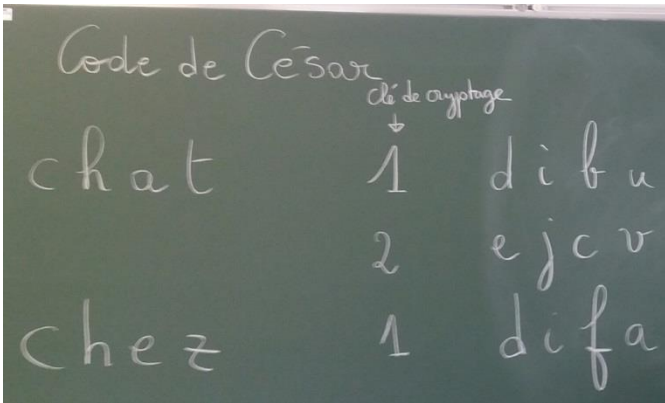 Code de César
clé de cryptage
chat 1 dibu
2 ejcv
chez 1 difa